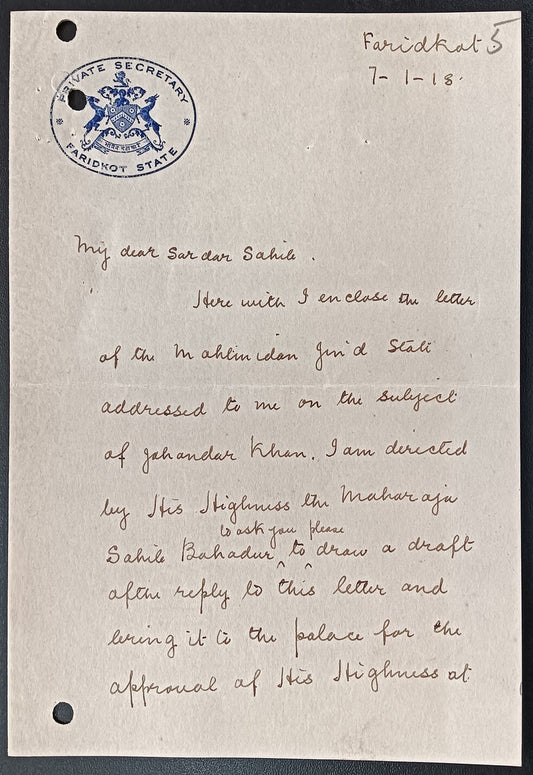 Faridkot 5
7-1-18.
PRIVATE SECRETARY
FARIDKOT STATE
My dear Sardar Sahib.
Here with I enclose the letter
of the Jind State
addressed to me on the subject
of Jahandar Khan. I am directed
by His Highness the Maharaja
to ask you please
Sahib Bahadur, to draw a draft
of the reply to this letter and
bring it to the palace for the
approval of His Highness at